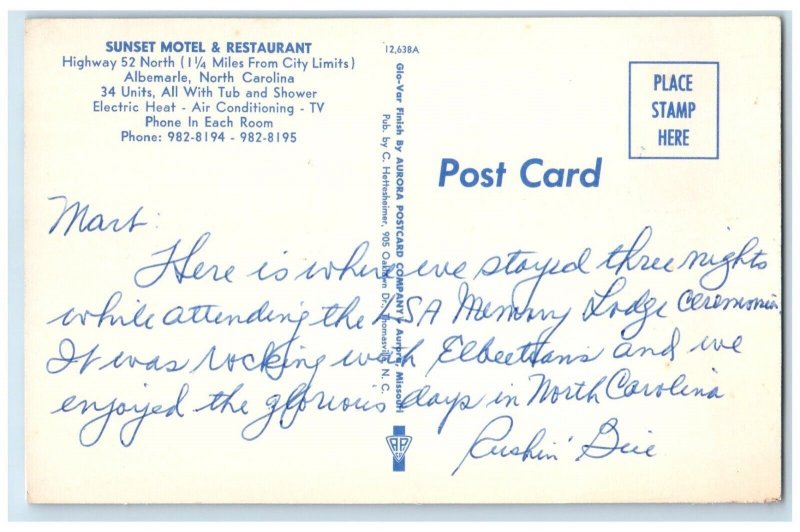 SUNSET MOTEL & RESTAURANT
Highway 52 North (1¼ Miles From City Limits)
Albemarle, North Carolina
34 Units, All With Tub and Shower
Electric Heat - Air Conditioning - TV
Phone In Each Room
Phone: 982-8194 - 982-8195
12,638A
Glo-Var Finish By AURORA POSTCARD COMPANY, Aurora, Missouri
Pub. by C. Hettesheimer, 905 Dr., Thomasville, N. C.
PLACE
STAMP
HERE
Post Card
Mart:
Here is where we stayed three nights
while attending the Memory Lodge Ceremonies.
It was rocking with and we
enjoyed the glorious days in North Carolina